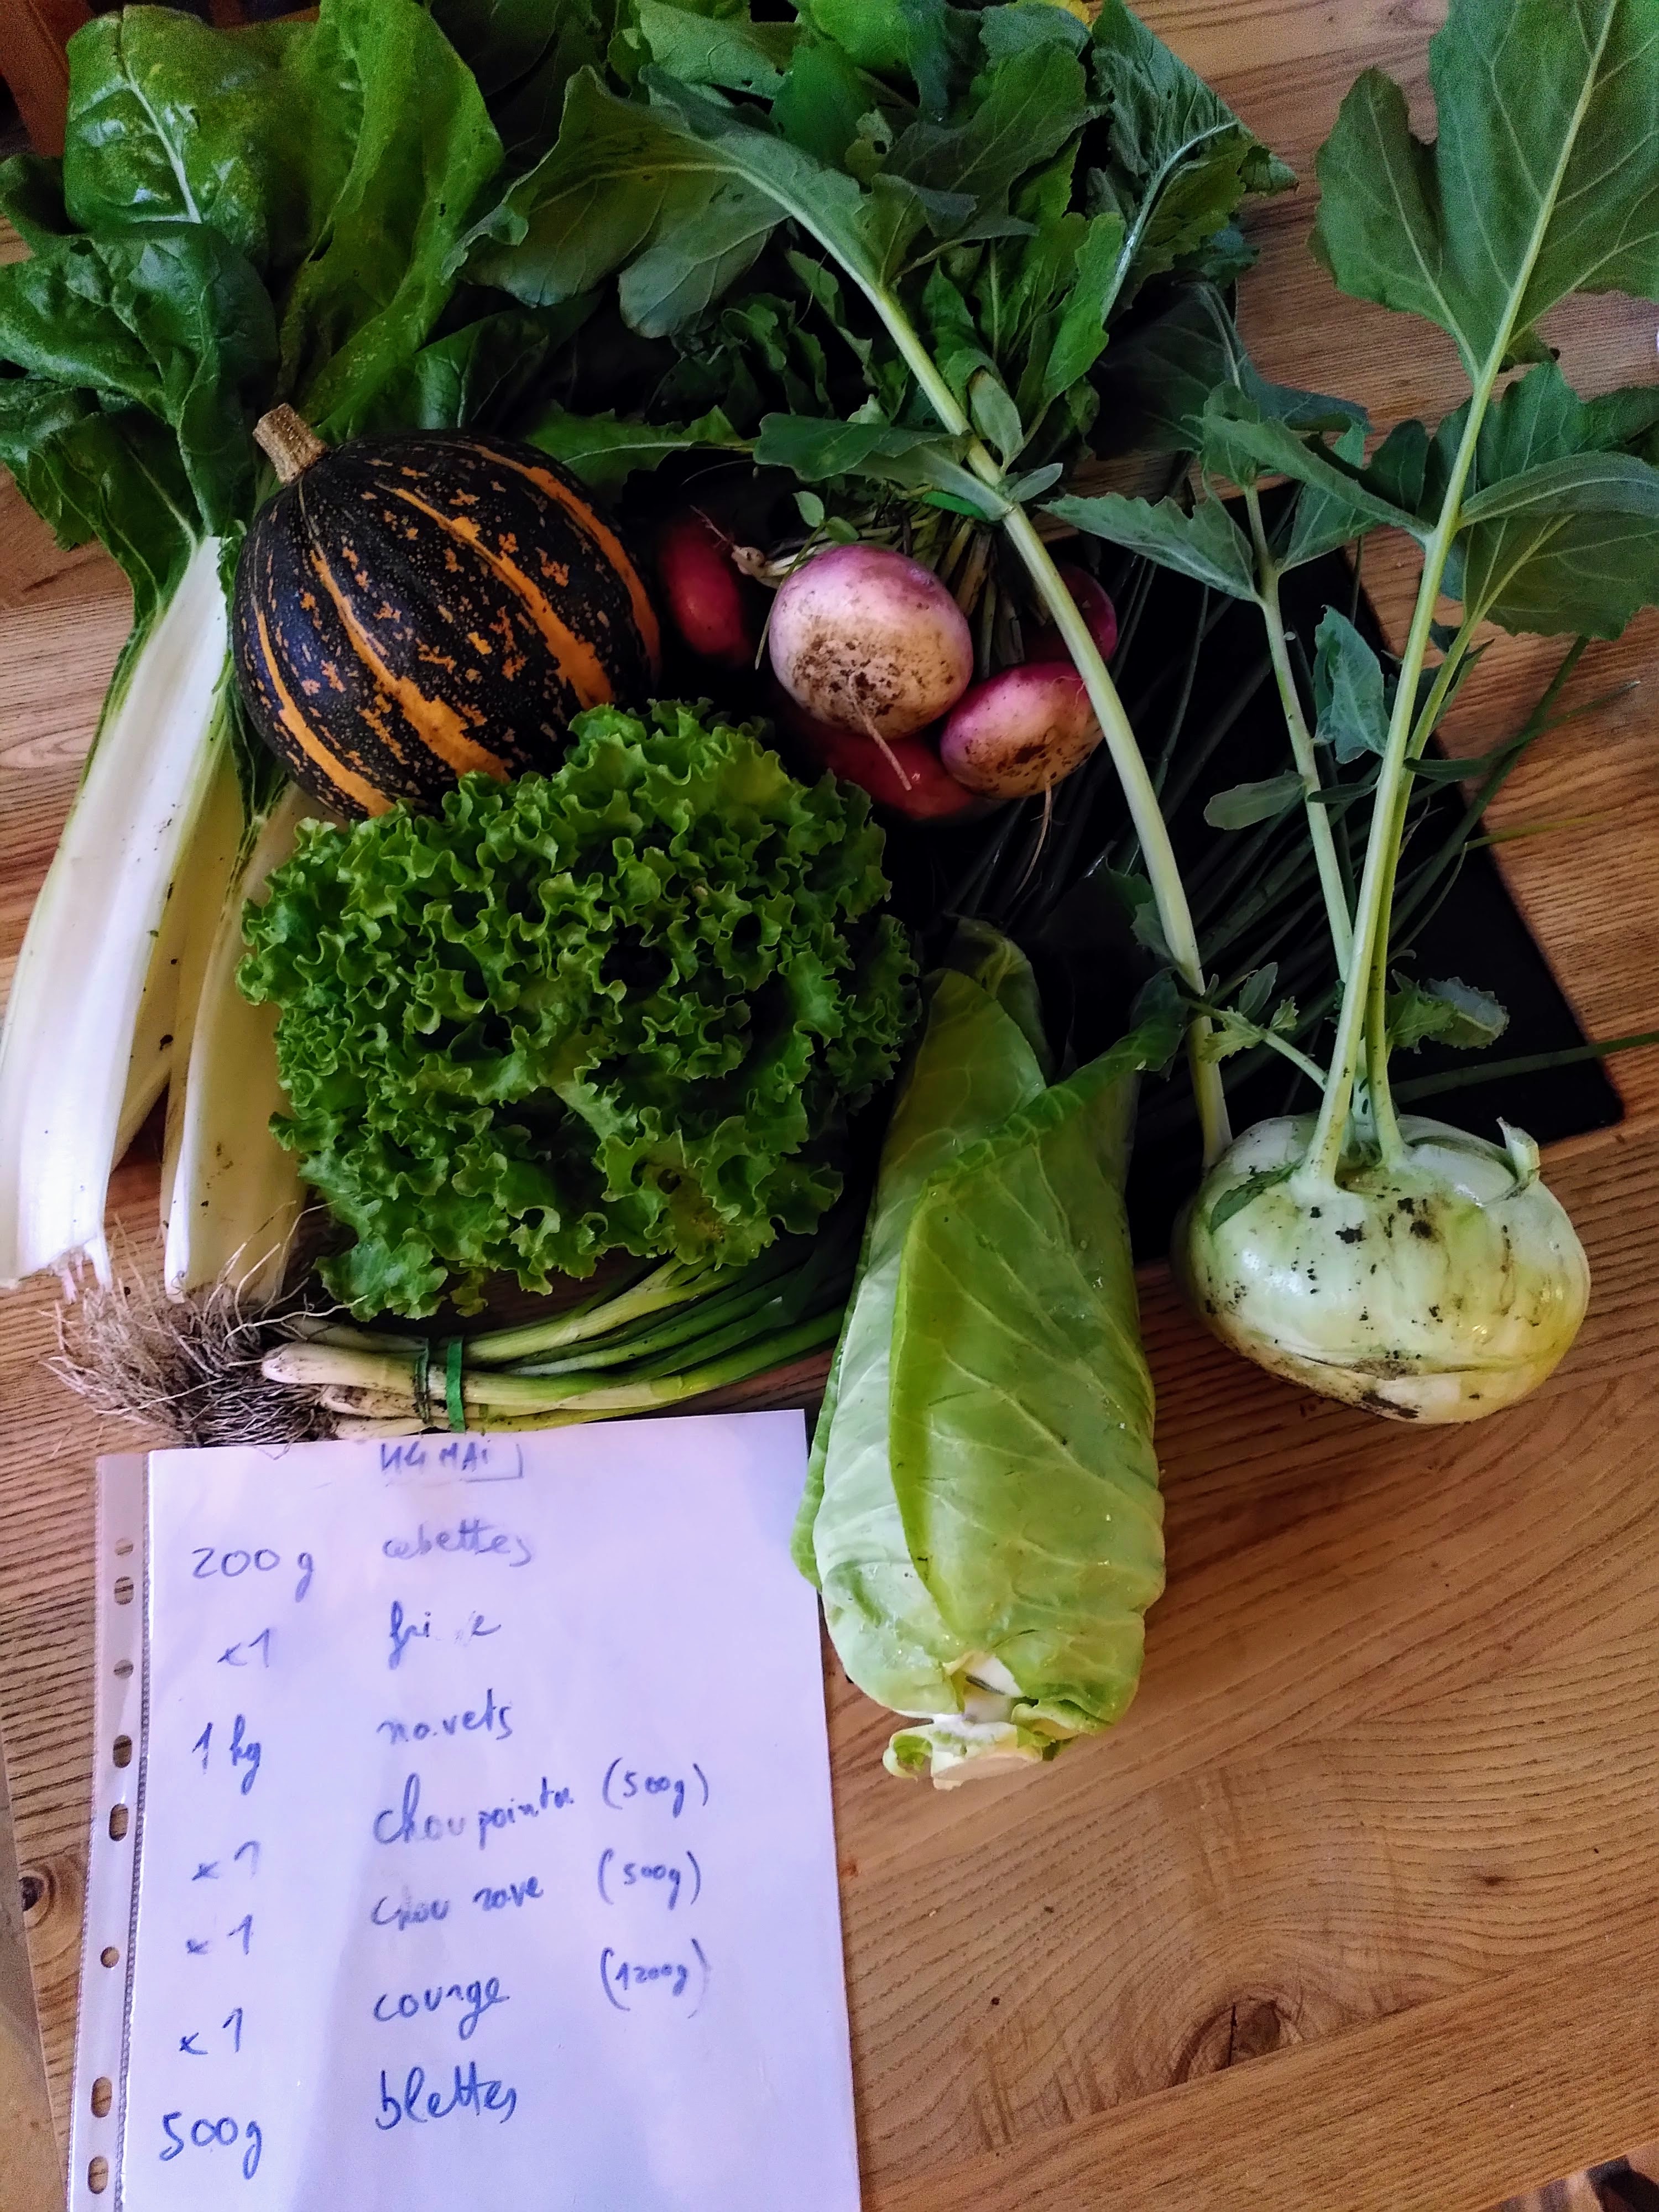 14 MAi
200g cebettes
x1
1 kg navets
x1 chou pointu (500g)
x1 chou rave (500g)
x1 courge (1200g)
500g blettes